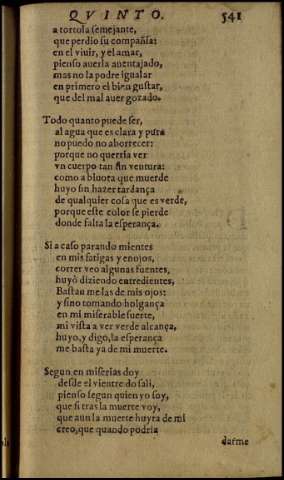 QVINTO. 541
a tortola semejante,
que perdio su compañia:
en el viuir, y el amar,
pienso auerla auentajado,
mas no la podre igualar
en primero el bien gustar,
que del mal auer gozado.
Todo quanto puede ser,
al agua que es clara y pura
no puedo no aborrecer:
porque no querria ver
vn cuerpo tan sin ventura:
como a biuora que muerde
huyo sin hazer tardança
de qualquier cosa que es verde,
porque este color se pierde
donde falta la esperança.
Si a caso parando mientes
en mis fatigas y enojos,
correr veo algunas fuentes,
huyo diziendo entredientes,
Bastan me las de mis ojos:
y sino tomando holgança
en mi miserable suerte,
mi vista a ver verde alcança,
huyo, y digo, la esperança
me basta ya de mi muerte.
Segun en miserias doy
desde el vientre do sali,
pienso segun quien yo soy,
que si tras la muerte voy,
que aun la muerte huyra de mi
creo, que quando podria
darme